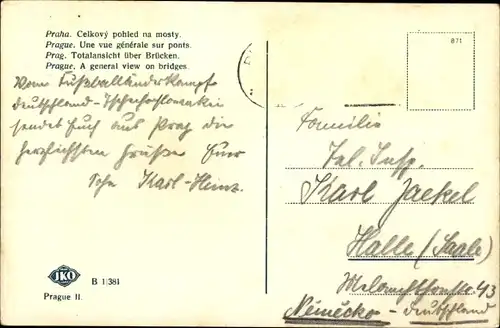 Praha. Celkový pohled na mosty.
Prague. Une vue générale sur ponts.
Prag. Totalansicht über Brücken.
Prague. A general view on bridges.
Vom Fußballländerkampf
Deutschland-Tschechoslowakei
sendet Euch aus Prag die
herzlichsten Grüße Euer
Sohn Karl-Heinz.
JKO
B 1/381
Prague II.
871
Familie
Tel. Insp.
Karl Jaekel
Halle/(Saale)
Melanchthonstr. 43
Německo - Deutschland